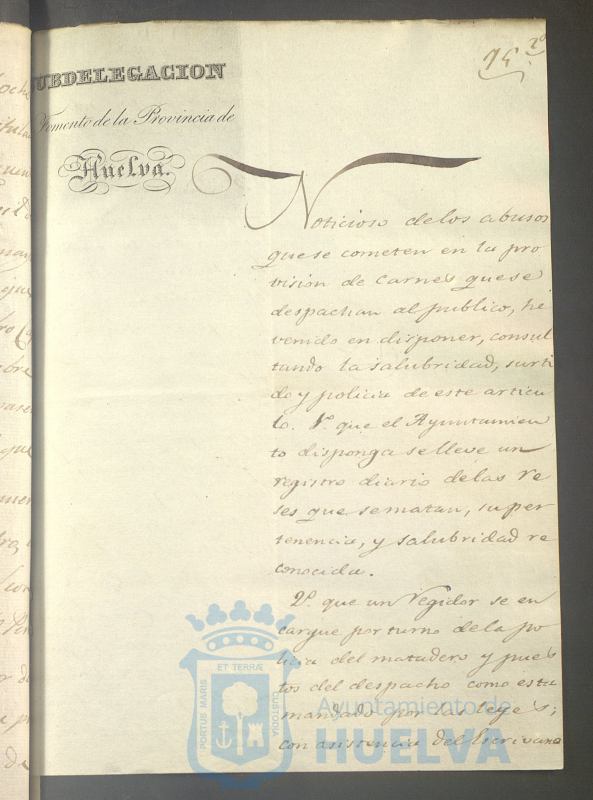 SUBDELEGACION
Fomento de la Provincia de
Huelva.
Noticioso de los abusos
que se cometen en la pro
vision de carnes que se
despachan al publico, he
venido en disponer, consul
tando la salubridad, surti
do y policia de este articu
lo. 1º que el Ayuntamien
to disponga se lleve un
registro diario de las re
ses que se matan, su per
tenencia, y salubridad re
conocida.
2º que un Regidor se en
cargue por turno de la po
licia del matadero y pues
tos del despacho como esta
mandado por las leyes;
con asistencia del Escribano
ET TERRÆ
PORTUS MARIS
CUSTODIA
Ayuntamiento de
HUELVA